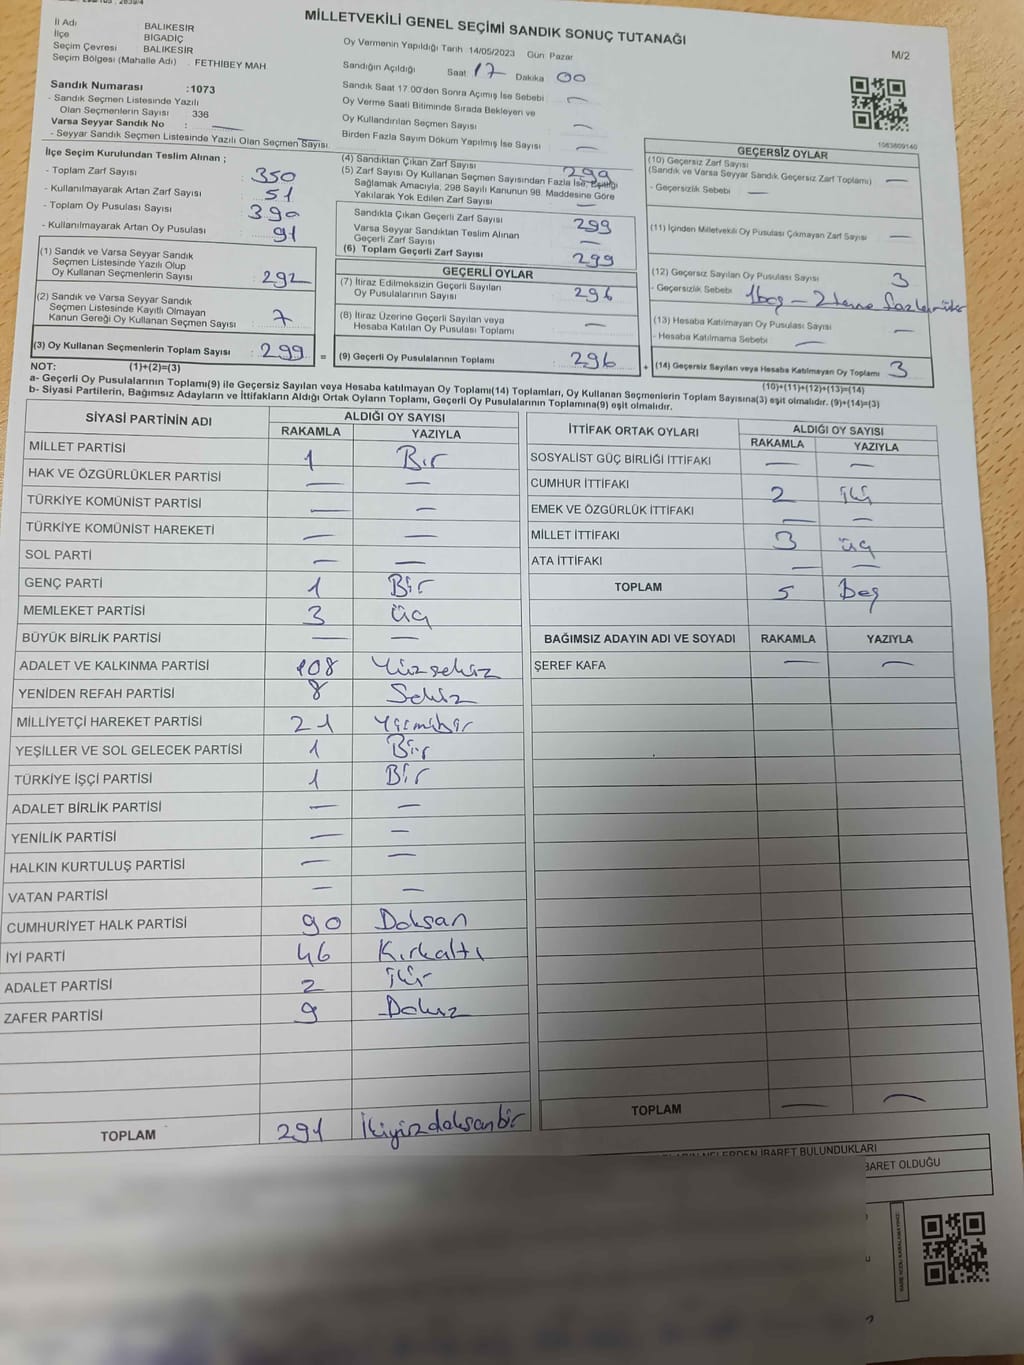 MİLLETVEKİLİ GENEL SEÇİMİ SANDIK SONUÇ TUTANAĞI
M/2
İl Adı BALIKESİR
İlçe BİGADİÇ
Seçim Çevresi BALIKESİR
Seçim Bölgesi (Mahalle Adı) : FETHİBEY MAH
Sandık Numarası :1073
- Sandık Seçmen Listesinde Yazılı
Olan Seçmenlerin Sayısı 336
Varsa Seyyar Sandık No : —
- Seyyar Sandık Seçmen Listesinde Yazılı Olan Seçmen Sayısı —
Oy Vermenin Yapıldığı Tarih 14/05/2023 Gün: Pazar
Sandığın Açıldığı Saat 17 Dakika 00
Sandık Saat 17.00'den Sonra Açımış İse Sebebi —
Oy Verme Saati Bitiminde Sırada Bekleyen ve
Oy Kullandırılan Seçmen Sayısı —
Birden Fazla Sayım Döküm Yapılmış İse Sayısı —
1083809140
İlçe Seçim Kurulundan Teslim Alınan ;
- Toplam Zarf Sayısı : 350
- Kullanılmayarak Artan Zarf Sayısı : 51
- Toplam Oy Pusulası Sayısı : 390
- Kullanılmayarak Artan Oy Pusulası : 91
(1) Sandık ve Varsa Seyyar Sandık
Seçmen Listesinde Yazılı Olup
Oy Kullanan Seçmenlerin Sayısı : 292
(2) Sandık ve Varsa Seyyar Sandık
Seçmen Listesinde Kayıtlı Olmayan
Kanun Gereği Oy Kullanan Seçmen Sayısı : 7
(3) Oy Kullanan Seçmenlerin Toplam Sayısı : 299 =
(4) Sandıktan Çıkan Zarf Sayısı 299
(5) Zarf Sayısı Oy Kullanan Seçmen Sayısından Fazla İse, Eşitliği
Sağlamak Amacıyla, 298 Sayılı Kanunun 98. Maddesine Göre
Yakılarak Yok Edilen Zarf Sayısı —
Sandıkta Çıkan Geçerli Zarf Sayısı 299
Varsa Seyyar Sandıktan Teslim Alınan
Geçerli Zarf Sayısı —
(6) Toplam Geçerli Zarf Sayısı 299
GEÇERLİ OYLAR
(7) İtiraz Edilmeksizin Geçerli Sayılan
Oy Pusulalarının Sayısı : 296
(8) İtiraz Üzerine Geçerli Sayılan veya
Hesaba Katılan Oy Pusulası Toplamı : —
(9) Geçerli Oy Pusulalarının Toplamı : 296 +
GEÇERSİZ OYLAR
(10) Geçersiz Zarf Sayısı
(Sandık ve Varsa Seyyar Sandık Geçersiz Zarf Toplamı) —
- Geçersizlik Sebebi : —
(11) İçinden Milletvekili Oy Pusulası Çıkmayan Zarf Sayısı —
(12) Geçersiz Sayılan Oy Pusulası Sayısı 3
- Geçersizlik Sebebi : 1 boş - 2 tane
(13) Hesaba Katılmayan Oy Pusulası Sayısı —
- Hesaba Katılmama Sebebi : —
(14) Geçersiz Sayılan veya Hesaba Katılmayan Oy Toplamı 3
NOT: (1)+(2)=(3)
(10)+(11)+(12)+(13)=(14)
a- Geçerli Oy Pusulalarının Toplamı(9) ile Geçersiz Sayılan veya Hesaba katılmayan Oy Toplamı(14) Toplamları, Oy Kullanan Seçmenlerin Toplam Sayısına(3) eşit olmalıdır. (9)+(14)=(3)
b- Siyasi Partilerin, Bağımsız Adayların ve İttifakların Aldığı Ortak Oyların Toplamı, Geçerli Oy Pusulalarının Toplamına(9) eşit olmalıdır.
SİYASİ PARTİNİN ADI ALDIĞI OY SAYISI
RAKAMLA YAZIYLA
MİLLET PARTİSİ 1 Bir
HAK VE ÖZGÜRLÜKLER PARTİSİ — —
TÜRKİYE KOMÜNİST PARTİSİ — —
TÜRKİYE KOMÜNİST HAREKETİ — —
SOL PARTİ — —
GENÇ PARTİ 1 Bir
MEMLEKET PARTİSİ 3 üç
BÜYÜK BİRLİK PARTİSİ — —
ADALET VE KALKINMA PARTİSİ 108 Yüzsekiz
YENİDEN REFAH PARTİSİ 8 Sekiz
MİLLİYETÇİ HAREKET PARTİSİ 21 Yirmibir
YEŞİLLER VE SOL GELECEK PARTİSİ 1 Bir
TÜRKİYE İŞÇİ PARTİSİ 1 Bir
ADALET BİRLİK PARTİSİ — —
YENİLİK PARTİSİ — —
HALKIN KURTULUŞ PARTİSİ — —
VATAN PARTİSİ — —
CUMHURİYET HALK PARTİSİ 90 Doksan
İYİ PARTİ 46 Kırkaltı
ADALET PARTİSİ 2 iki
ZAFER PARTİSİ 9 Dokuz
TOPLAM 291 İkiyüzdoksanbir
İTTİFAK ORTAK OYLARI ALDIĞI OY SAYISI
RAKAMLA YAZIYLA
SOSYALİST GÜÇ BİRLİĞİ İTTİFAKI — —
CUMHUR İTTİFAKI 2 iki
EMEK VE ÖZGÜRLÜK İTTİFAKI — —
MİLLET İTTİFAKI 3 üç
ATA İTTİFAKI — —
TOPLAM 5 Beş
BAĞIMSIZ ADAYIN ADI VE SOYADI RAKAMLA YAZIYLA
ŞEREF KAFA — —
TOPLAM — —
NELERDEN İBARET BULUNDUKLARI
BARET OLDUĞU